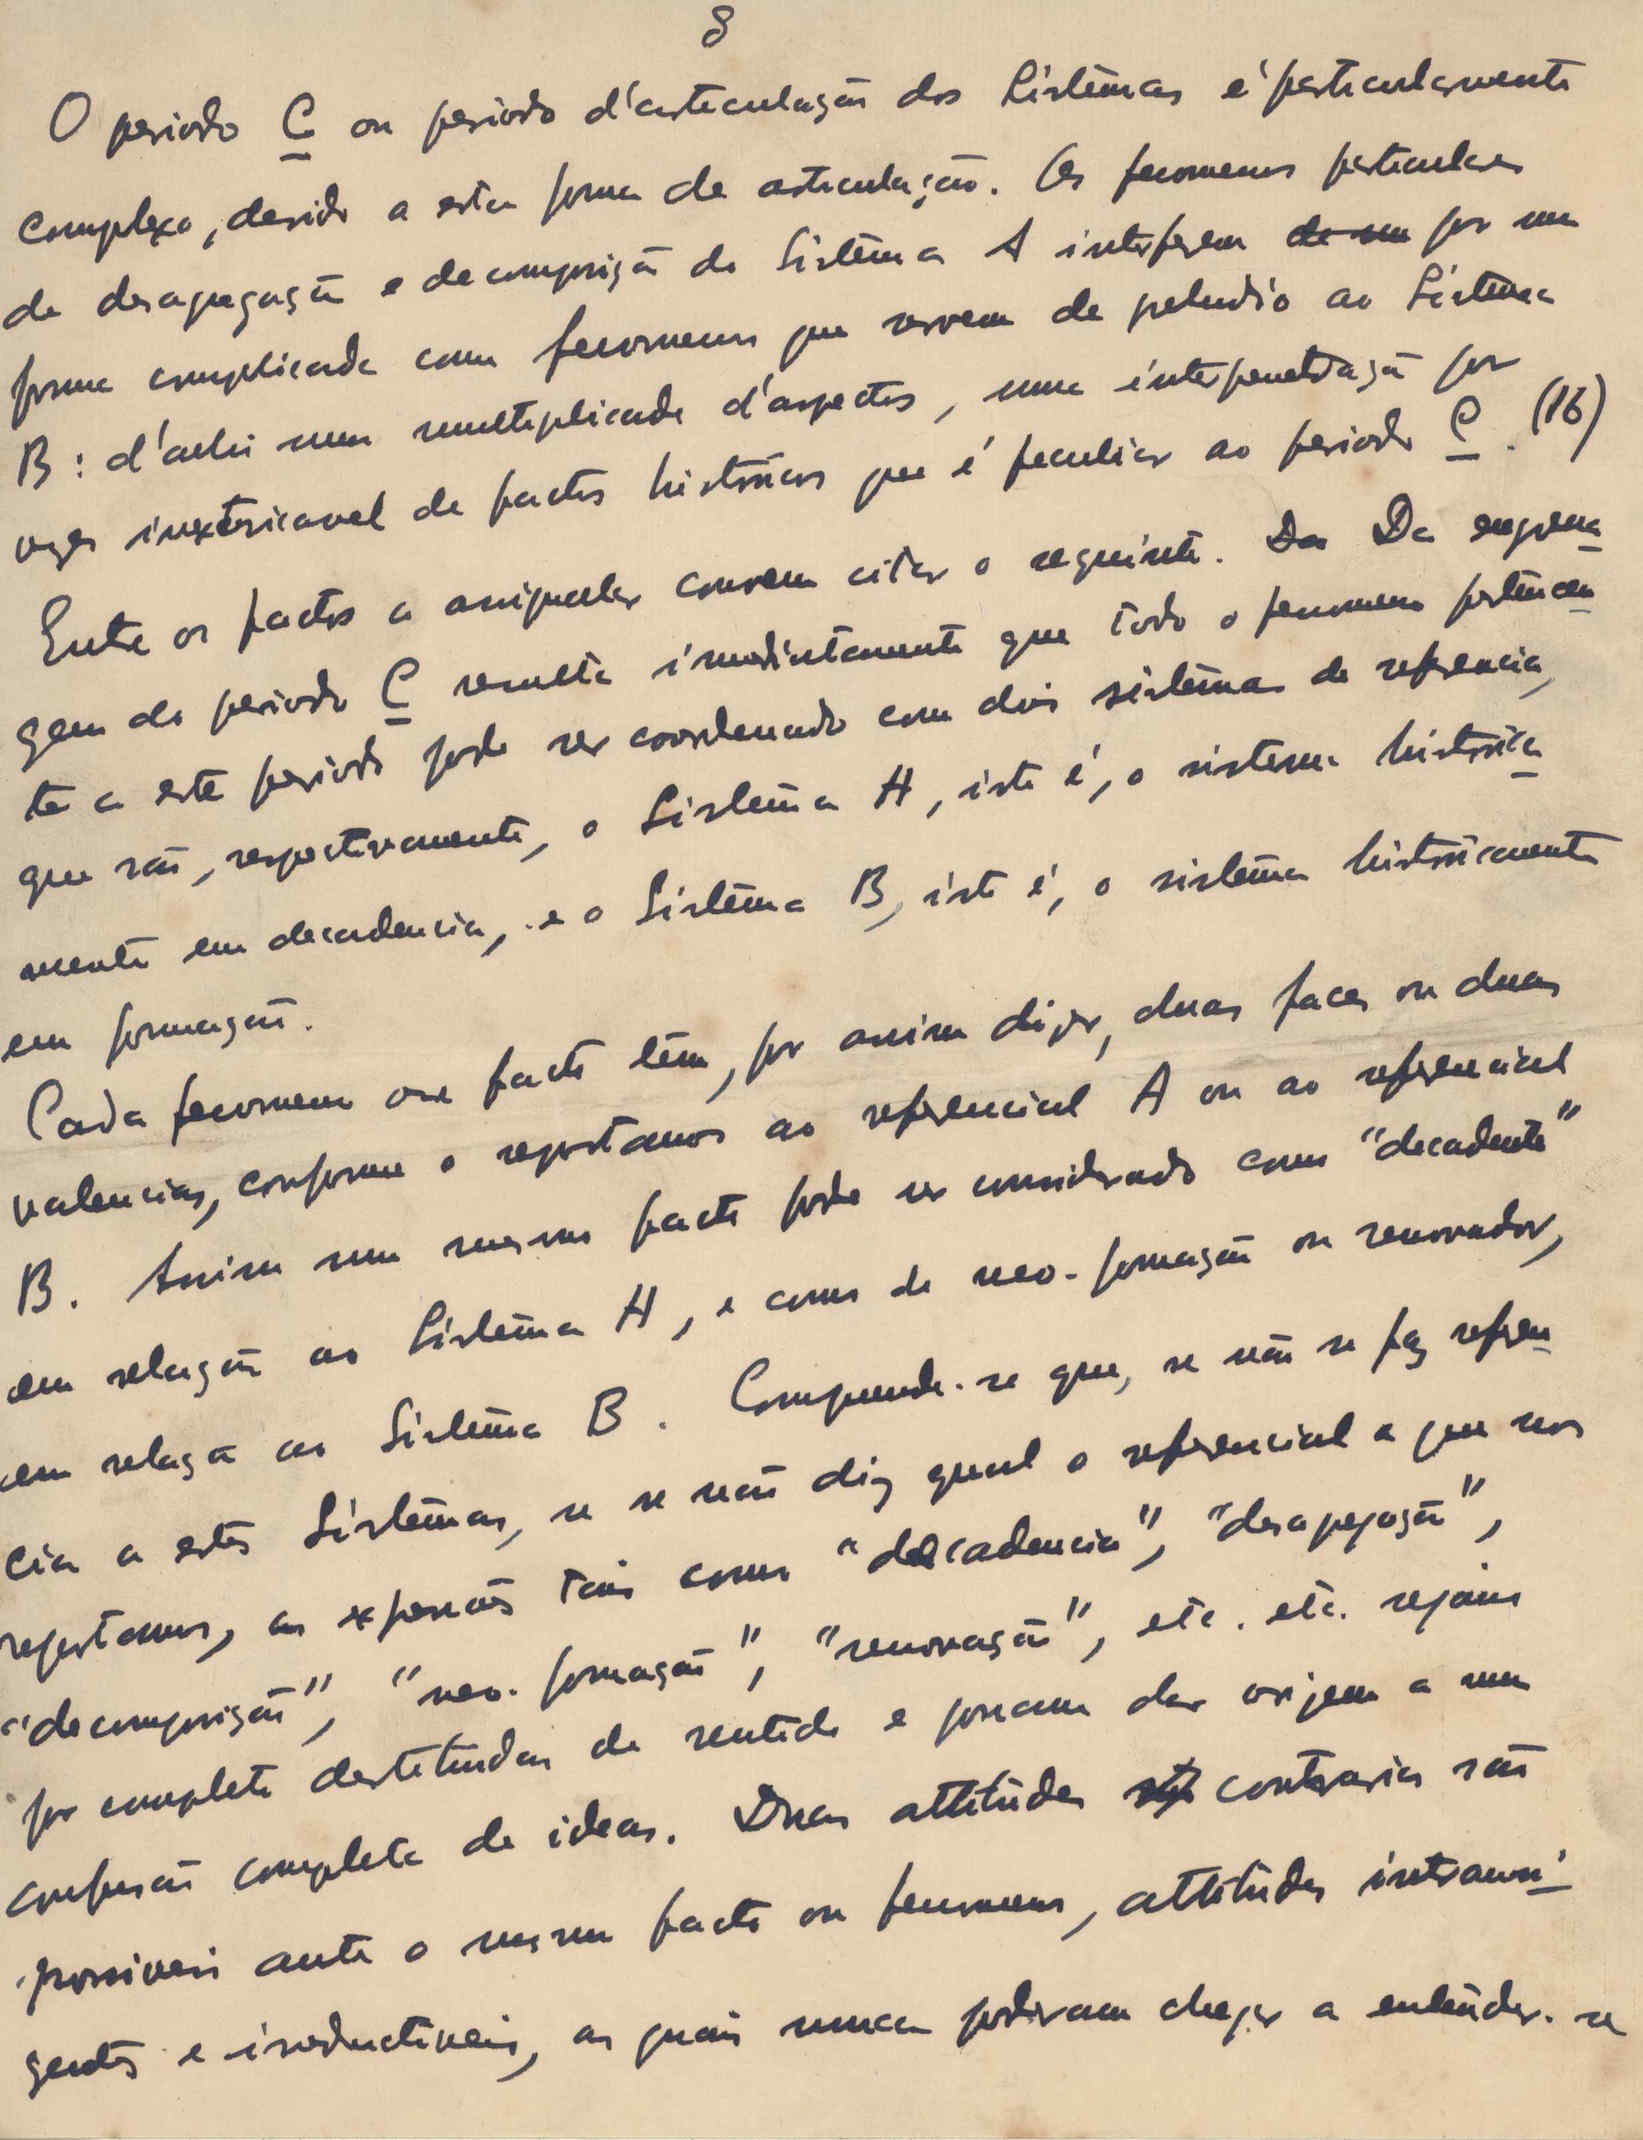 8
O periodo C ou periodo d'articulação dos Sistêmas é particularmente
complexo, devido a esta forma de articulação. Os fenomenos particulares
de desagregação e decomposição do Sistêma A interferem de um por uma
forma complicada com fenomenos que servem de preludio ao Sistêma
B: d'ahi uma multiplicidade d'aspectos, uma interpenetração por
vezes inextricavel de factos históricos que é peculiar ao periodo C. (16)
Entre os factos a assignalar convem citar o seguinte. Da Da engrena
gem do periodo C resulta imediatamente que todo o fenomeno pertencen
te a este periodo pode ser coordenado com dois sistêmas de referencia,
que são, respectivamente, o Sistêma A, isto é, o sistema historica
mente em decadencia, e o Sistêma B, isto é, o sistêma historicamente
em formação.
Cada fenomeno ou facto têm, por assim dizer, duas faces ou duas
valencias, conforme o reportamos ao referencial A ou ao referencial
B. Assim um mesmo facto pode ser considerado como "decadente"
em relação ao Sistêma A, e como de neo-formação ou renovador,
em relação ao Sistêma B. Comprende-se que, se não se faz referen
cia a estes Sistêmas, se se não diz qual o referencial a que nos
reportamos, as expressões tais como "decadencia", "desagregação",
"decomposição", "neo-formação", "renovação", etc. etc. sejam
por completo destituidas de sentido e possam dar origem a uma
confusão completa de ideas. Duas attitudes contrarias são
possiveis ante o mesmo facto ou fenomeno, attitudes intransi
gentes e irreductiveis, as quais nunca poderam chegar a entender-se